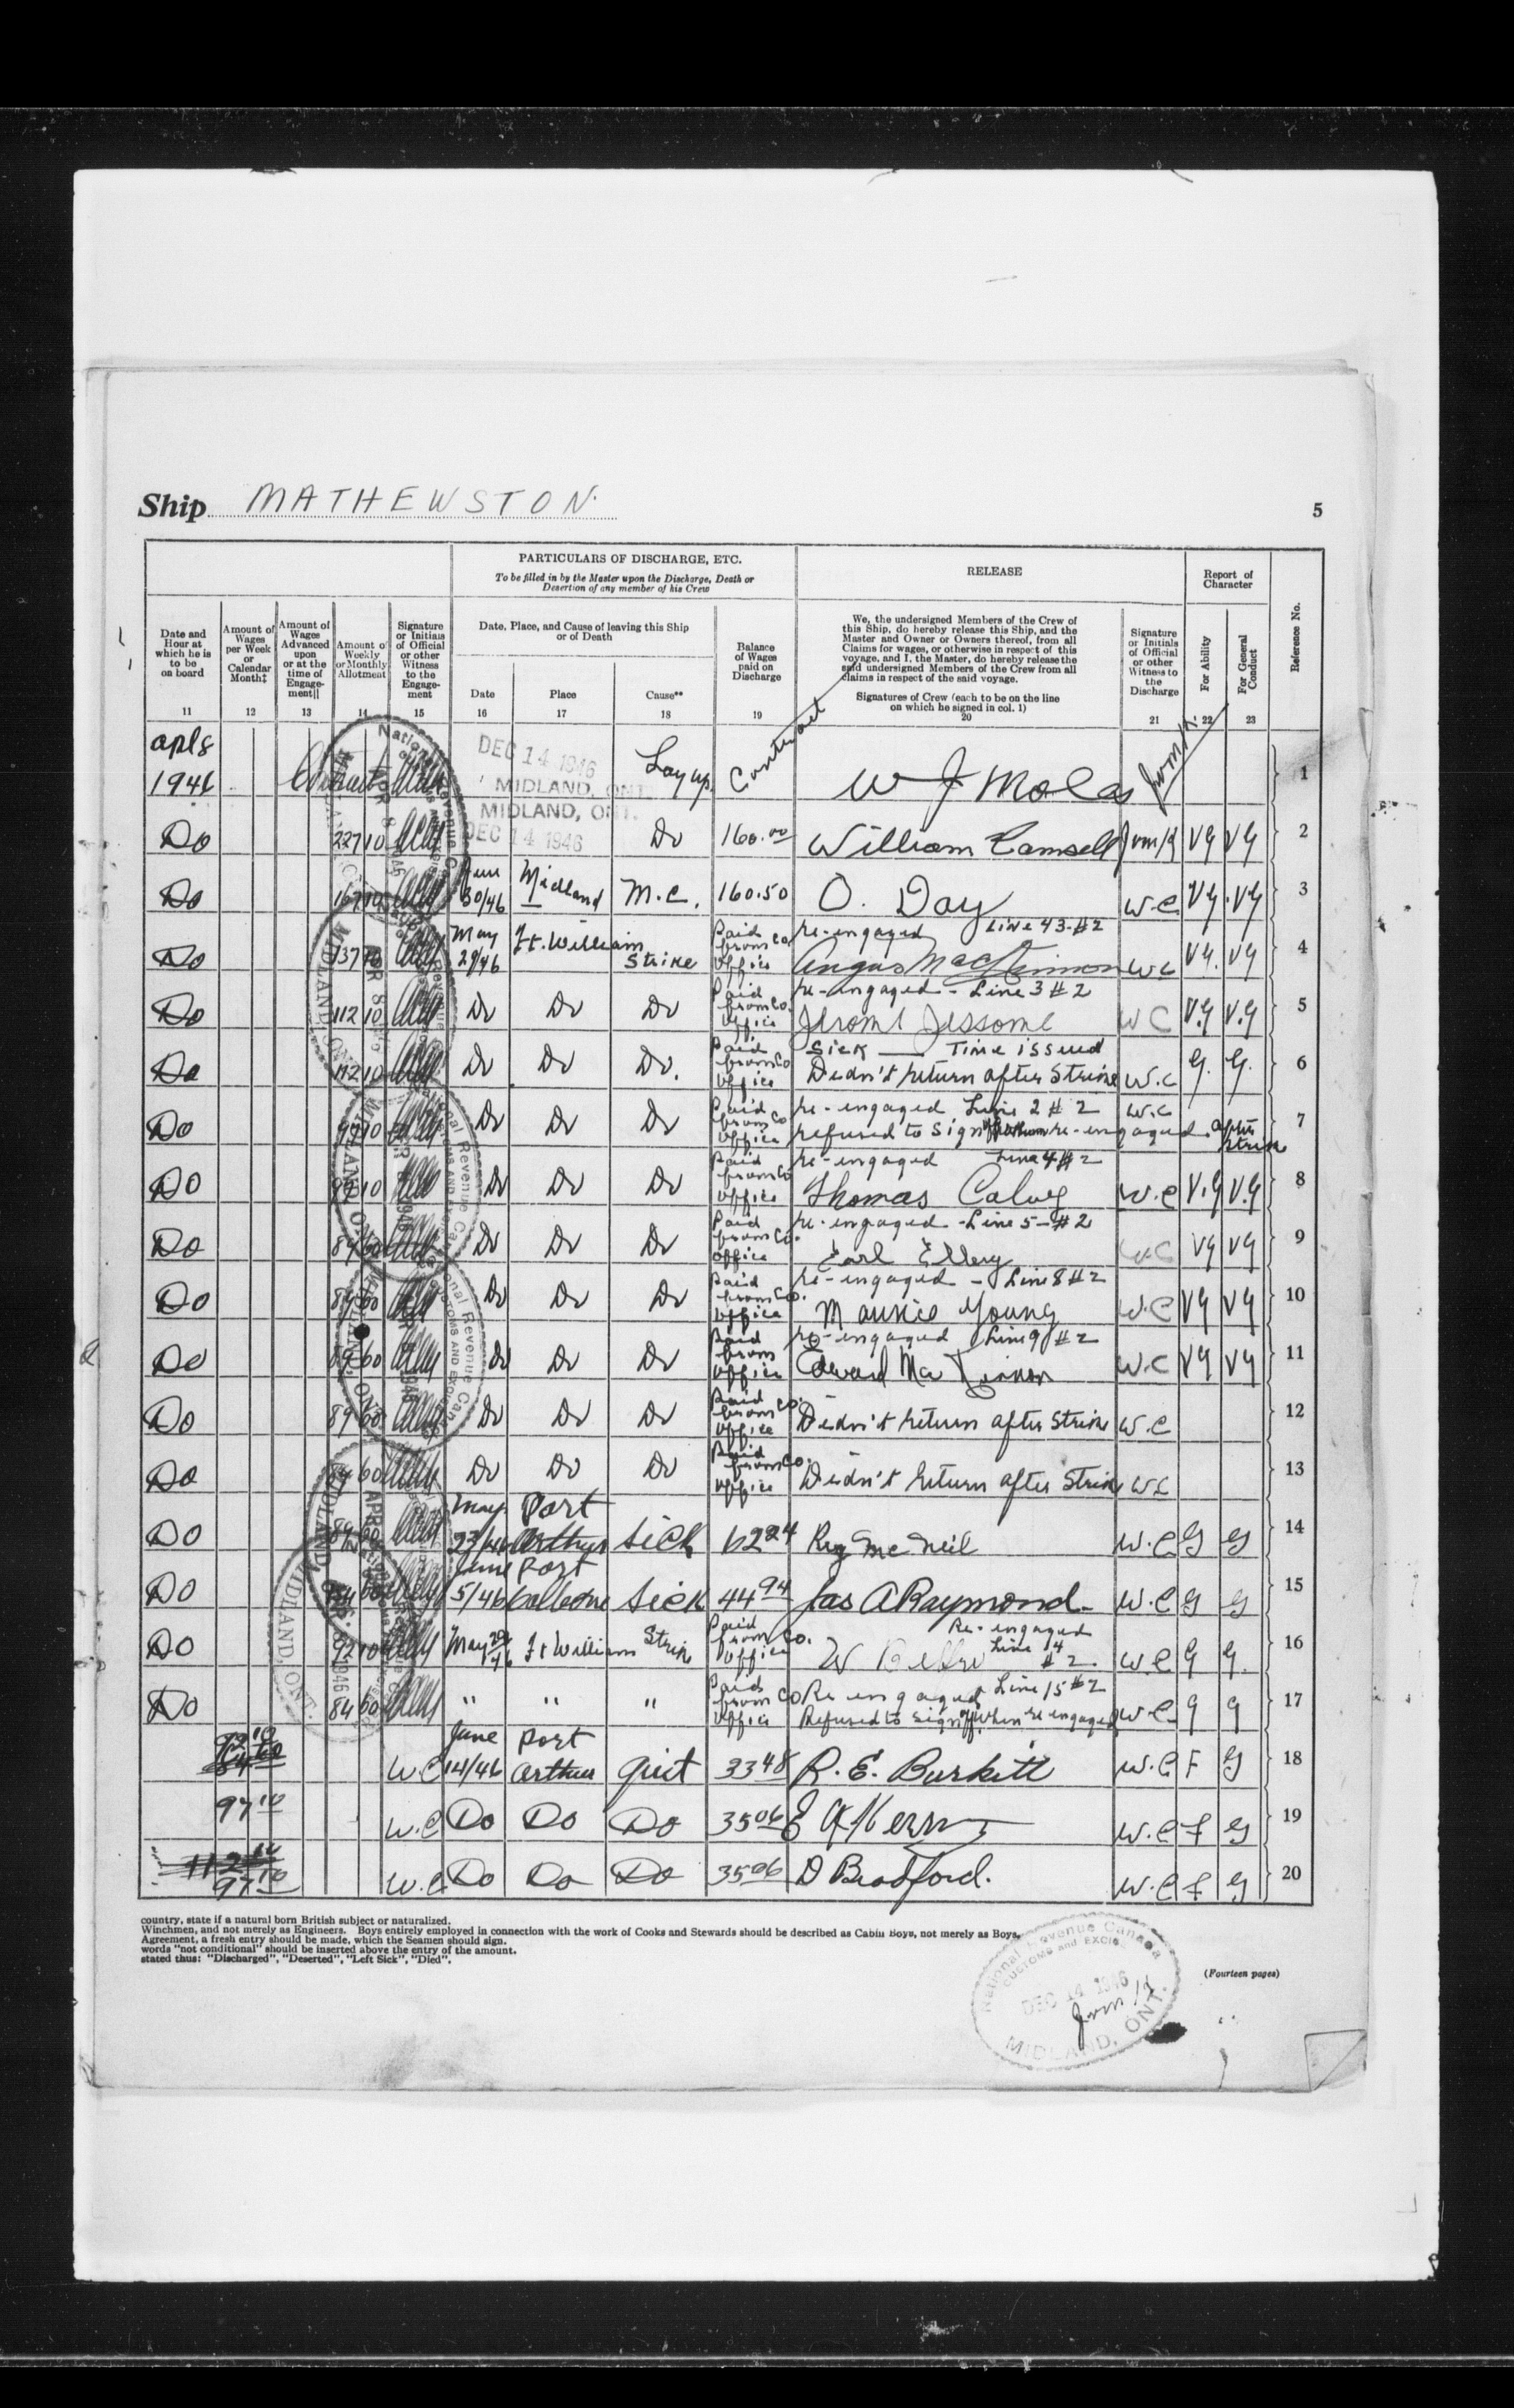 Ship MATHEWSTON.
5
PARTICULARS OF DISCHARGE, ETC.
To be filled in by the Master upon the Discharge, Death or
Desertion of any member of his Crew
RELEASE
Report of
Character
Reference No.
Date and
Hour at
which he is
to be
on board
11
Amount of
Wages
per Week
or
Calendar
Month‡
12
Amount of
Wages
Advanced
upon
or at the
time of
Engage-
ment||
13
Amount of
Weekly
or Monthly
Allotment
14
Signature
or Initials
of Official
or other
Witness
to the
Engage-
ment
15
Date, Place, and Cause of leaving this Ship
or of Death
Date
16
Place
17
Cause**
18
Balance
of Wages
paid on
Discharge
19
We, the undersigned Members of the Crew of
this Ship, do hereby release this Ship, and the
Master and Owner or Owners thereof, from all
Claims for wages, or otherwise in respect of this
voyage, and I, the Master, do hereby release the
said undersigned Members of the Crew from all
claims in respect of the said voyage.
Signatures of Crew (each to be on the line
on which he signed in col. 1)
20
Signature
or Initials
of Official
or other
Witness to
the
Discharge
21
For Ability
22
For General
Conduct
23
apl 8
1946 Contract DEC 14 1946 MIDLAND, ONT. Lay up Contract W J 1
Do 227 10 MIDLAND, ONT. DEC 14 1946 Do 160.00 William VG VG 2
Do 167 10 June 30/46 Midland M.C. 160.50 O. Day W.C VG VG 3
Do 137 10 May 29/46 Ft. William Strike Paid from Co Office re-engaged Line 43-#2
Angus MacKinnon WC VG VG 4
Do 112 10 Do Do Do Paid from Co. Office re-engaged - Line 3 #2
Jerome Jessome WC V.G V.G 5
Do 112 10 Do Do Do. Paid from Co Office Sick — Time issued
Didn't return after Strike W.C G. G. 6
Do 97 10 Do Do Do Paid from Co Office re-engaged Line 2 #2 W.C
refused to sign off when re-engaged after strike 7
Do 97 10 Do Do Do Paid from Co Office re-engaged Line 4 #2
Thomas W.C V.G V.G 8
Do 89 60 Do Do Do Paid from Co. Office re-engaged - Line 5 - #2
Earl Ellery W.C VG VG 9
Do 89 60 Do Do Do Paid from Co. Office re-engaged - Line 8 #2
Maurice Young W.C VG VG 10
Do 89 60 Do Do Do Paid from Office re-engaged Line 9 #2
Edward Mac Kinnon W.C VG VG 11
Do 89 60 Do Do Do Paid from Co. Office Didn't return after Strike W.C 12
Do 84 60 Do Do Do Paid from Co. Office Didn't return after Strike WC 13
Do 84 60 May 23/46 Port Arthur Sick 62 24 Reg Mc Neil W.C G G 14
Do 84 60 June 5/46 Port Colborne Sick 44 94 Jas A Raymond W.C G G 15
Do 92 10 May 29/46 Ft William Strike Paid from Co. Office Re-engaged Line 14 #2. W W.C G G. 16
Do 84 60 " " " Paid from Co Office Re engaged Line 15 #2
Refused to sign off when re engaged W.C G G 17
92 10 W.C June 14/46 Port Arthur Quit 33 48 R. E. Burkitt W.C F G 18
97 10 W.C Do Do Do 35 06 W.C F G 19
112 10 97 10 W.C Do Do Do 35 06 D Bradford. W.C F G 20
country, state if a natural born British subject or naturalized.
Winchmen, and not merely as Engineers. Boys entirely employed in connection with the work of Cooks and Stewards should be described as Cabin Boys, not merely as Boys.
Agreement, a fresh entry should be made, which the Seamen should sign.
words "not conditional" should be inserted above the entry of the amount.
stated thus: "Discharged", "Deserted", "Left Sick", "Died".
(Fourteen pages)
National Revenue Canada
CUSTOMS and EXCISE
DEC 14 1946
MIDLAND, ONT.